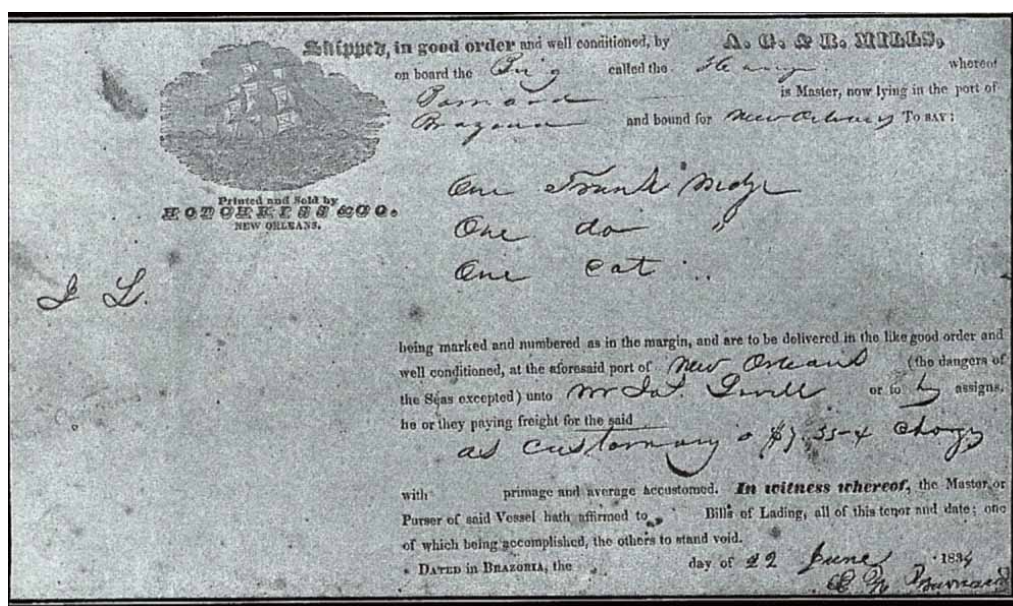 Shipped, in good order and well conditioned, by A. G. & R. MILLS,
on board the Brig called the Henry whereof
Barnard is Master, now lying in the port of
Brazoria and bound for New Orleans TO SAY:
One Trunk Mdze
One do "
One cat "
Printed and Sold by
HOTCHKISS & CO.
NEW ORLEANS.
J L.
being marked and numbered as in the margin, and are to be delivered in the like good order and
well conditioned, at the aforesaid port of New Orleans (the dangers of
the Seas excepted) unto Mr or to assigns,
he or they paying freight for the said
as customary
with primage and average accustomed. In witness whereof, the Master or
Purser of said Vessel hath affirmed to Bills of Lading, all of this tenor and date; one
of which being accomplished, the others to stand void.
DATED in BRAZORIA, the day of 22 June 1834
Barnard